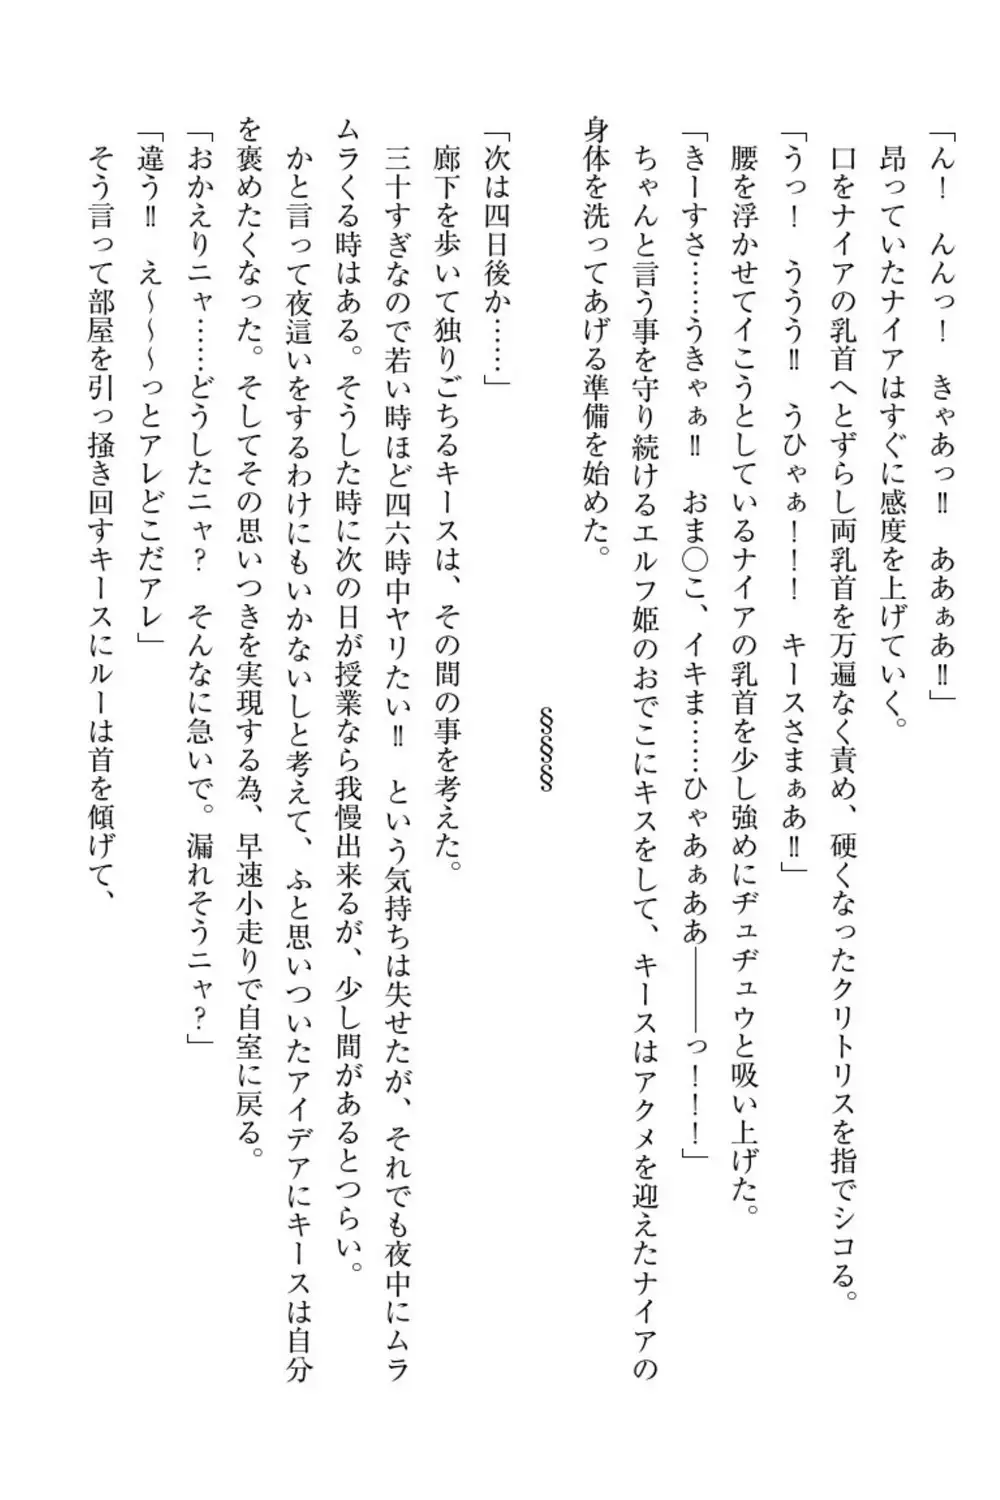 「ん！　んんっ！　きゃあっ‼　ああぁあ‼」
　昂っていたナイアはすぐに感度を上げていく。
　口をナイアの乳首へとずらし両乳首を万遍なく責め、硬くなったクリトリスを指でシコる。
「うっ！　ううう‼　うひゃぁ！！！　キースさまぁあ‼」
　腰を浮かせてイこうとしているナイアの乳首を少し強めにヂュヂュウと吸い上げた。
「きーすさ……うきゃぁ‼　おま〇こ、イキま……ひゃあぁああ――――っ！！！」
　ちゃんと言う事を守り続けるエルフ姫のおでこにキスをして、キースはアクメを迎えたナイアの
身体を洗ってあげる準備を始めた。
§§§
「次は四日後か……」
　廊下を歩いて独りごちるキースは、その間の事を考えた。
　三十すぎなので若い時ほど四六時中ヤリたい‼　という気持ちは失せたが、それでも夜中にムラ
ムラくる時はある。そうした時に次の日が授業なら我慢出来るが、少し間があるとつらい。
　かと言って夜這いをするわけにもいかないしと考えて、ふと思いついたアイデアにキースは自分
を褒めたくなった。そしてその思いつきを実現する為、早速小走りで自室に戻る。
「おかえりニャ……どうしたニャ？　そんなに急いで。漏れそうニャ？」
「違う‼　え～～～っとアレどこだアレ」
　そう言って部屋を引っ掻き回すキースにルーは首を傾げて、